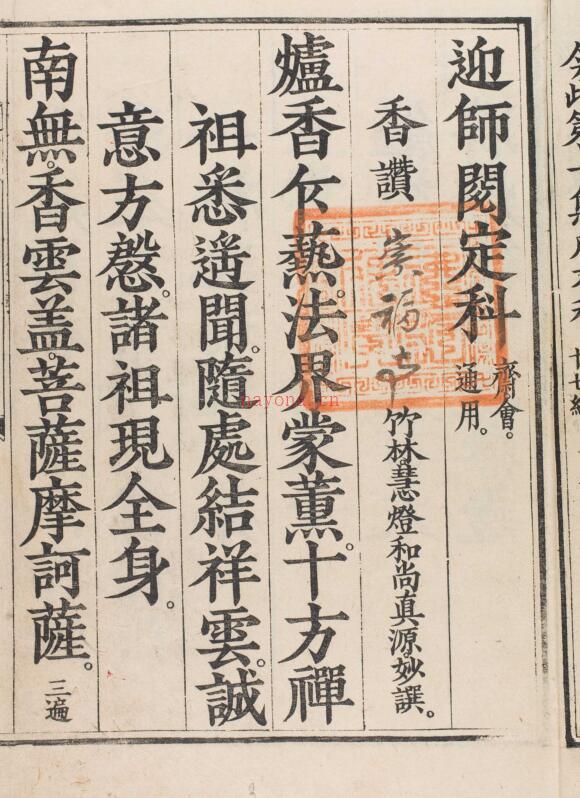 迎師閱定科 齊會。通用。
香讚 崇福寺 竹林慧燈和尚真源。妙譔。
爐香乍爇。法界蒙薰。十方禪
祖悉遥聞。隨處結祥雲。誠
意方慇。諸祖現全身。
南無。香雲盖。菩薩摩訶薩。三遍
nayona.cn